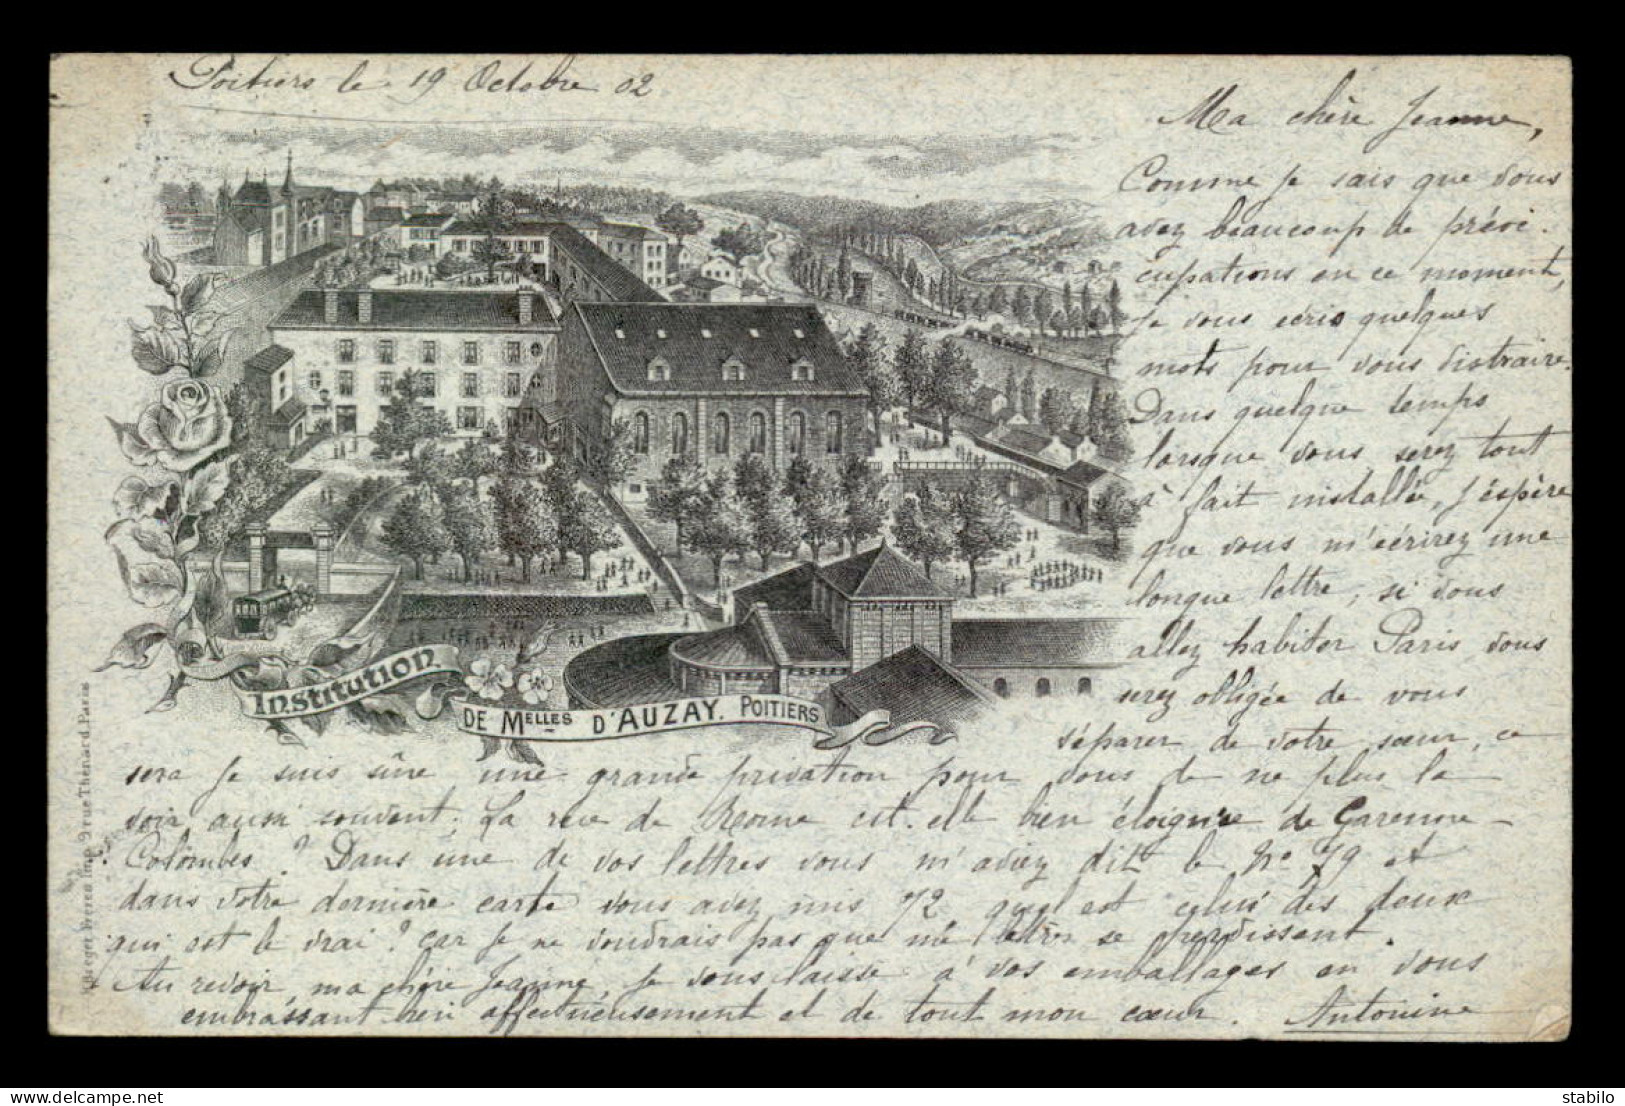 Poitiers le 19 Octobre 02
Ma chère Jeanne,
Comme je sais que vous
avez beaucoup de préoc-
cupations en ce moment,
je vous écris quelques
mots pour vous distraire.
Dans quelque temps
lorsque vous serez tout
à fait installée, j'espère
que vous m'écrirez une
longue lettre, si vous
allez habiter Paris vous
serez obligée de vous
séparer de votre sœur, ce
sera je suis sûre une grande privation pour vous de ne plus la
voir aussi souvent. La rue de Rome est-elle bien éloignée de Garenne-
Colombes ? Dans une de vos lettres vous m'aviez dit le No 79 et
dans votre dernière carte vous avez mis 72 quel est celui des deux
qui est le vrai ? car je ne voudrais pas que me lettres se perdissent.
Au revoir, ma chère Jeanne, je vous laisse à vos emballages en vous
embrassant bien affectueusement et de tout mon cœur. Antonine
Institution
DE MELLES D'AUZAY. POITIERS
Frères Imp. 9 rue Thénard. Paris
stabilo
delcampe.net